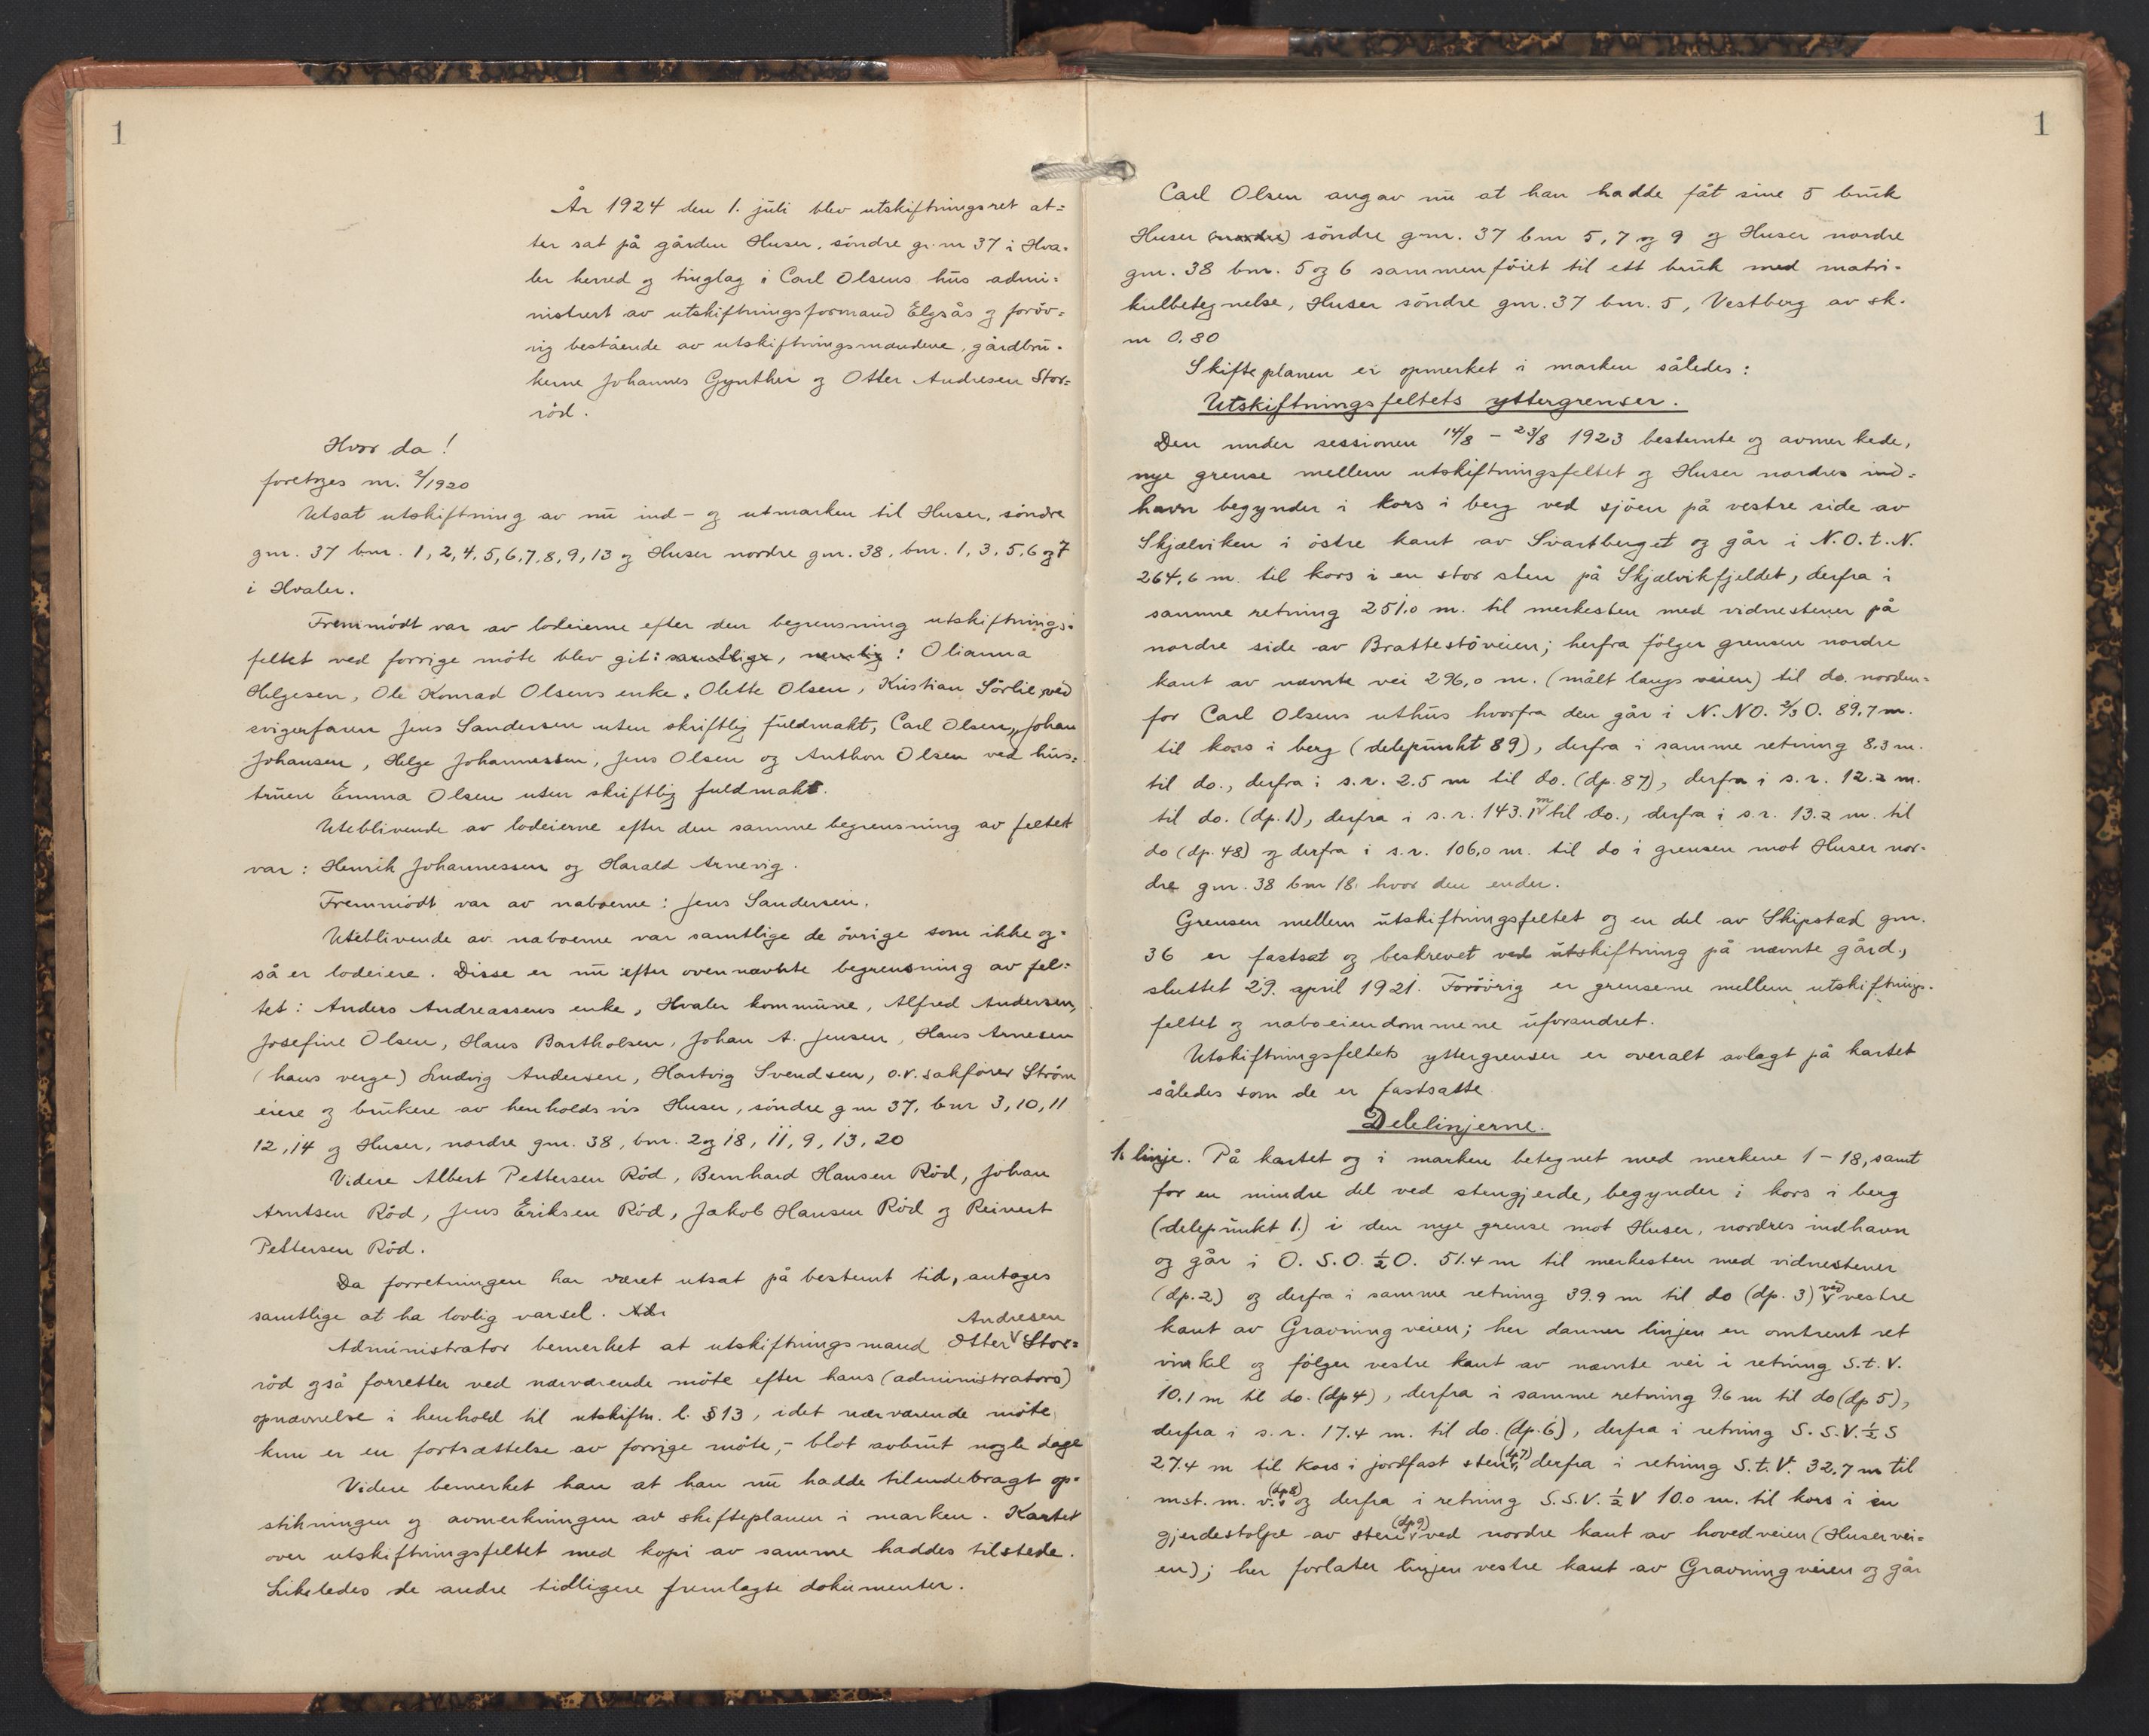 1
År 1924 den 1. juli blev utskiftningsret at=
ter sat på gården Huser, söndre gr. nr 37 i Hva-
ler herred og tinglag i Carl Olsens hus admi=
nistrert av utskiftningsformand Elgsås og foröv=
rig bestående av utskiftningsmændene, gårdbru-
kerne Johannes Gynther og Otter Andresen Stor=
röd.
Hvor da!
foretoges nr. 2/1920
Utsat utskiftning av nu ind- og utmarken til Huser, söndre
gnr. 37 bnr. 1, 2, 4, 5, 6, 7, 8, 9, 13 og Huser nordre gnr. 38, bnr. 1, 3, 5, 6 og 7
i Hvaler.
Fremmödt var av lodeierne efter den begrensning utskiftnings-
feltet ved forrige möte blev git: samtlige, nemlig: Olianna
Helgesen, Ole Konrad Olsens enke, Olette Olsen, Kristian Sörlie ved
svigerfaren Jens Sandersen uten skriftlig fuldmakt, Carl Olsen, Johan
Johansen, Helge Johannessen, Jens Olsen og Anthon Olsen ved hus=
truen Emma Olsen uten skriftlig fuldmakt.
Uteblivende av lodeierne efter den samme begrensning av feltet
var: Henrik Johannessen og Harald Arnevig.
Fremmödt var av naboerne: Jens Sandersen.
Uteblivende av naboerne var samtlige de övrige som ikke og-
så er lodeiere. Disse er nu efter ovennævnte begrensning av fel=
tet: Anders Andreassens enke, Hvaler kommune, Alfred Andersen,
Josefine Olsen, Hans Bartholsen, Johan A. Jensen, Hans Arnesen
(hans verge) Ludvig Andersen, Hartvig Svendsen, o.r. sakförer Ström
eiere og brukere av henholdsvis Huser, söndre gnr 37, bnr 3, 10, 11
12, 14 og Huser, nordre gnr. 38, bnr. 2 og 18, 11, 9, 13, 20
Videre Albert Pettersen Röd, Bernhard Hansen Röd, Johan
Arntsen Röd, Jens Eriksen Röd, Jakob Hansen Röd og Reinert
Pettersen Röd.
Da forretningen har været utsat på bestemt tid, antages
samtlige at ha lovlig varsel. Adr
Administrator bemerket at utskiftningsmand Otter Andresen Stor=
röd også forretter ved nærværende möte efter hans (administrators)
opnævnelse i henhold til utskiftn. l. § 13, idet nærværende möte
kun er en fortsættelse av forrige möte, - blot avbrut nogle dage
Videre bemerket han at han nu hadde tilendebragt op-
stikningen og avmerkningen av skifteplanen i marken. Kartet
over utskiftningsfeltet med kopi av samme haddes tilstede.
Likeledes de andre tidligere fremlagte dokumenter.
1
Carl Olsen angav nu at han hadde fåt sine 5 bruk
Huser (nordre) söndre gnr. 37 bnr 5, 7 og 9 og Huser nordre
gnr. 38 bnr. 5 og 6 sammenföiet til ett bruk med matri-
kulbetegnelse, Huser söndre gnr. 37 bnr. 5, Vestberg av sk.
m 0.80
Skifteplanen er opmerket i marken således:
Utskiftningsfeltets yttergrenser.
Den under sessionen 14/8 - 23/8 1923 bestemte og avmerkede,
nye grense mellem utskiftningsfeltet og Huser nordres ind=
havn begynder i kors i berg ved sjöen på vestre side av
Skjælviken i östre kant av Svartberget og går i N.O.t.N.
264,6 m. til kors i en stor sten på Skjælvikfjeldet, derfra i
samme retning 251,0 m. til merkesten med vidnestener på
nordre side av Brattestöveien; herfra fölger grensen nordre
kant av nævnte vei 296,0 m. (målt langs veien) til do. norden=
for Carl Olsens uthus hvorfra den går i N.NO. 2/3 O. 89,7 m.
til kors i berg (delepunkt 89), derfra i samme retning 8.3 m.
til do., derfra i s.r. 2.5 m til do. (dp. 87), derfra i s.r. 12.2 m.
til do. (dp. 1), derfra i s.r. 143.1 m til do., derfra i s.r. 13.2 m. til
do (dp. 48) og derfra i s.r. 106,0 m. til do i grensen mot Huser nor-
dre gnr. 38 bnr 18. hvor den ender.
Grensen mellem utskiftningsfeltet og en del av Skipstad gnr.
36 er fastsat og beskrevet ved utskiftning på nævnte gård,
sluttet 29. april 1921. Forövrig er grensene mellem utskiftnings-
feltet og naboeiendommene uforandret.
Utskiftningsfeltets yttergrenser er overalt avlagt på kartet
således som de er fastsatte
Delelinjerne.
1. linje. På kartet og i marken betegnet med merkene 1 - 18, samt
for en mindre del ved stengjerde, begynder i kors i berg
(delepunkt 1.) i den nye grense mot Huser, nordres indhavn
og går i O. S.O. 1/2 O. 51.4 m til merkesten med vidnestener
(dp. 2) og derfra i samme retning 39.9 m til do (dp. 3) ved vestre
kant av Gravningveien; her danner linjen en omtrent ret
vinkel og fölger vestre kant av nævnte vei i retning S.t.V.
10.1 m til do. (dp 4), derfra i samme retning 9.6 m til do (dp 5),
derfra i s.r. 17.4 m. til do. (dp. 6), derfra i retning S.S.V. 1/2 S
27.4 m til kors i jordfast sten (dp 7), derfra i retning S.t.V. 32.7 m til
mst. m. v.s (dp 8) og derfra i retning S.S.V. 1/2 V 10.0 m. til kors i en
gjerdestolpe av sten (dp 9) ved nordre kant av hovedveien (Huservei-
en); her forlater linjen vestre kant av Gravningveien og går